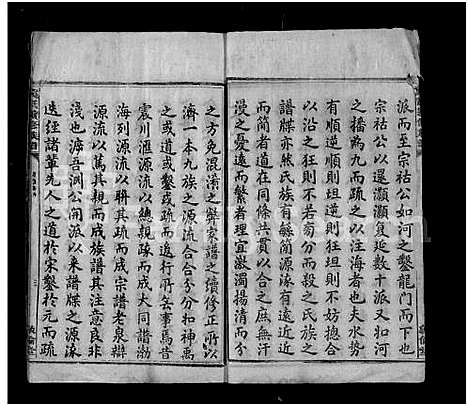 派而至宗祜公如河之鑿龍門而下也
宗祜公以還灝灝复延數十派又如河
之播為九而疏之以注海者也夫水勢
順則安逆則狂坦逆則狂坦則不妨揔合
以沿之狂則不若分而殺之民族之
譜牒亦然民族有蘇簡源泳有近
而簡者道在同條共貫以合之庶無汗
漫之虞而繁者理宜激濁揚清而分
之方免混淆之弊家譜之續修正所以
濟一本九族之源流合合分分扣和而
之或道或鑿或疏而遠行所無事焉昔
震川滙源流以總親疎而成大同譜渤
海列源流以篤其親而成宗譜老泉辯
源流以篤其親而成族譜其注意良非
淺也濂吾渕公開派以来譜牒之源流
迭經諸輩先人之道於宋鑿於元而疏